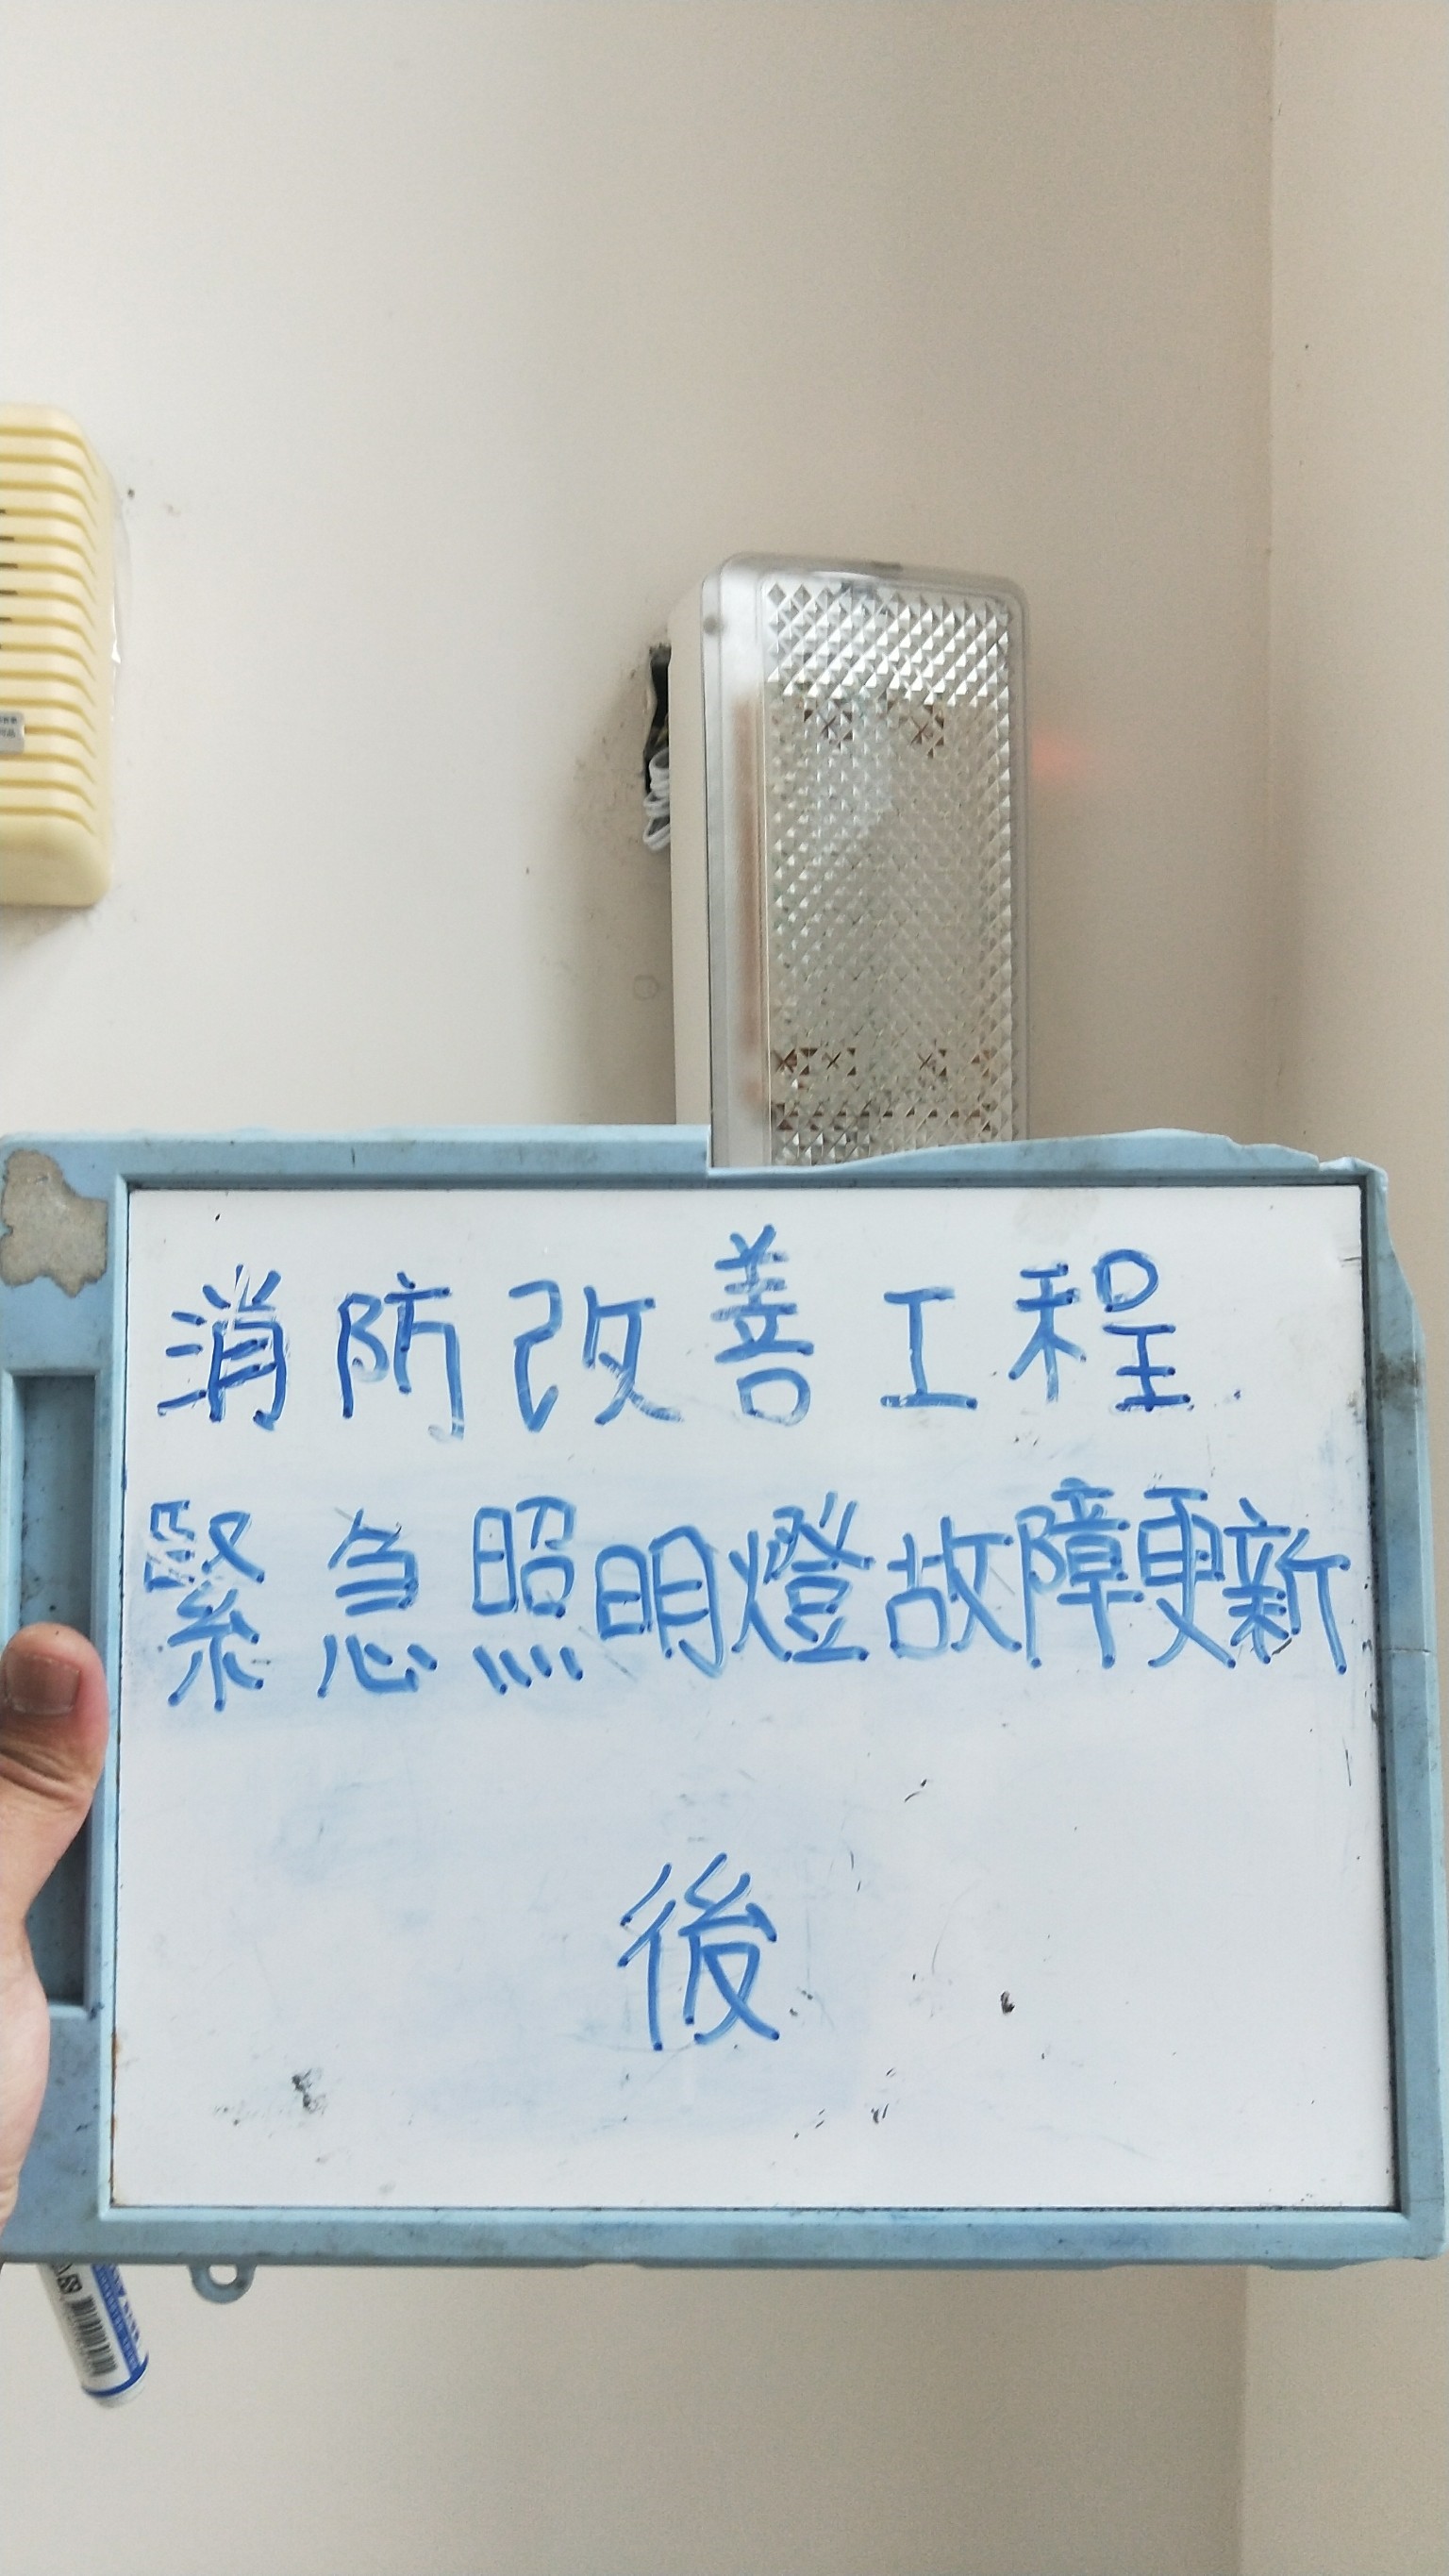 消防改善工程
緊急照明燈故障更新
後